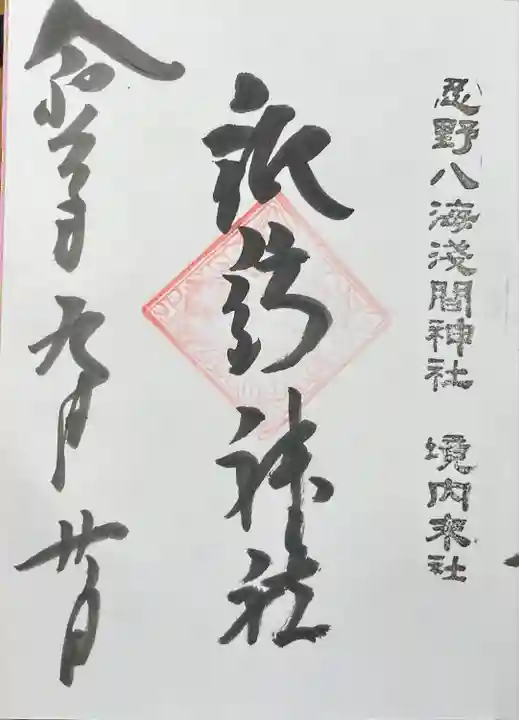 忍野八海淺間神社　境内末社
神社
令和 年 九月 廿 日